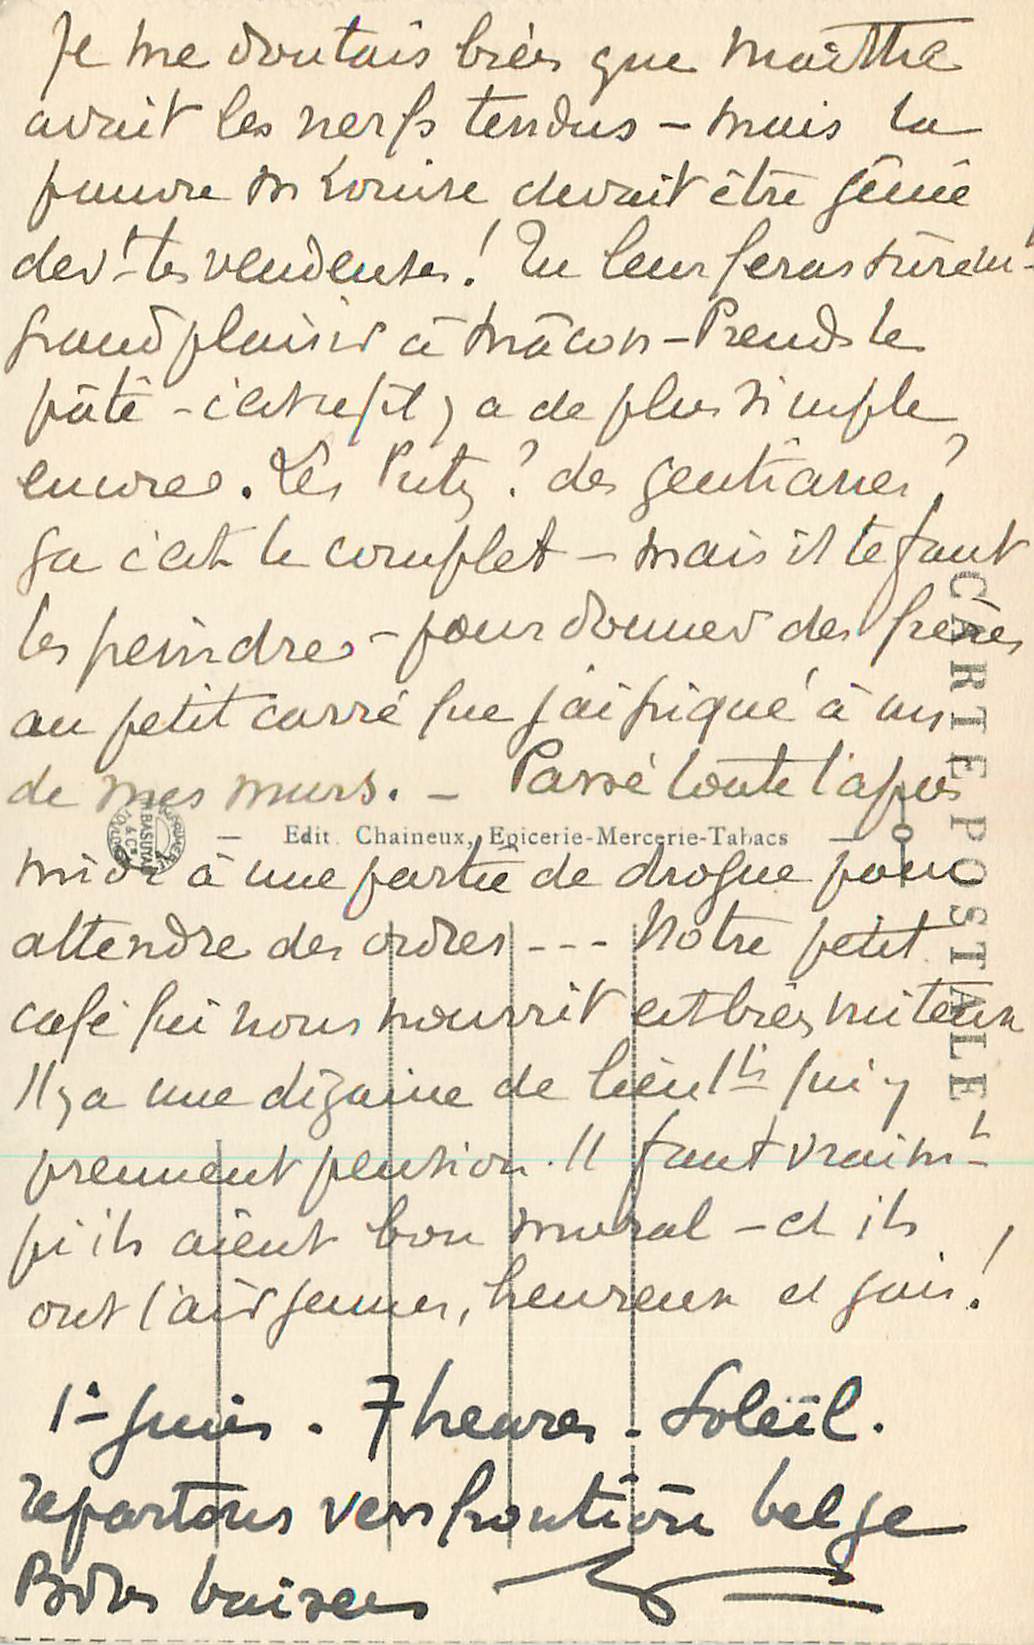 Je me doutais bien que Marthe
avait les nerfs tendus – mais la
pauvre M Louise devait être gênée
devt les vendeuses ! Tu leur feras sûremt
grand plaisir à Mâcon – Prends le
pâté – c'est ce qu'il y a de plus simple
encore. Les Puty ? des gentianes ?
ça c'est le complet – mais il te faut
les peindre – pour donner des frères
au petit carré que j'ai friqué à un
de mes murs. – Passé toute l'après
Edit. Chaineux, Epicerie-Mercerie-Tabacs
midi à une partie de drogue pour
attendre des ordres --- Notre petit
café qui nous nourrit est bien miteux
Il y a une dizaine de lieutts qui y
prennent pension. Il faut vraimt
qu'ils aient bon moral – et ils
ont l'air jeunes, heureux et gais !
1er Juin . 7 heures . Soleil .
repartons vers frontière belge
Bons baisers
CARTE POSTALE